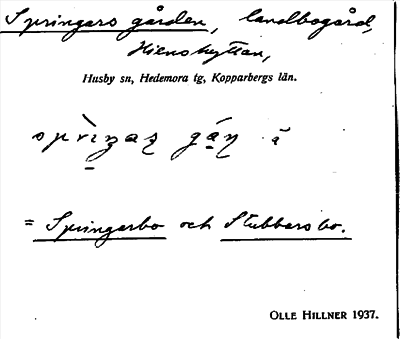 Springars gården, landbogård,
Hienshyttan,
Husby sn, Hedemora tg, Kopparbergs län.
= Springarbo och Stubbarsbo.
OLLE HILLNER 1937.